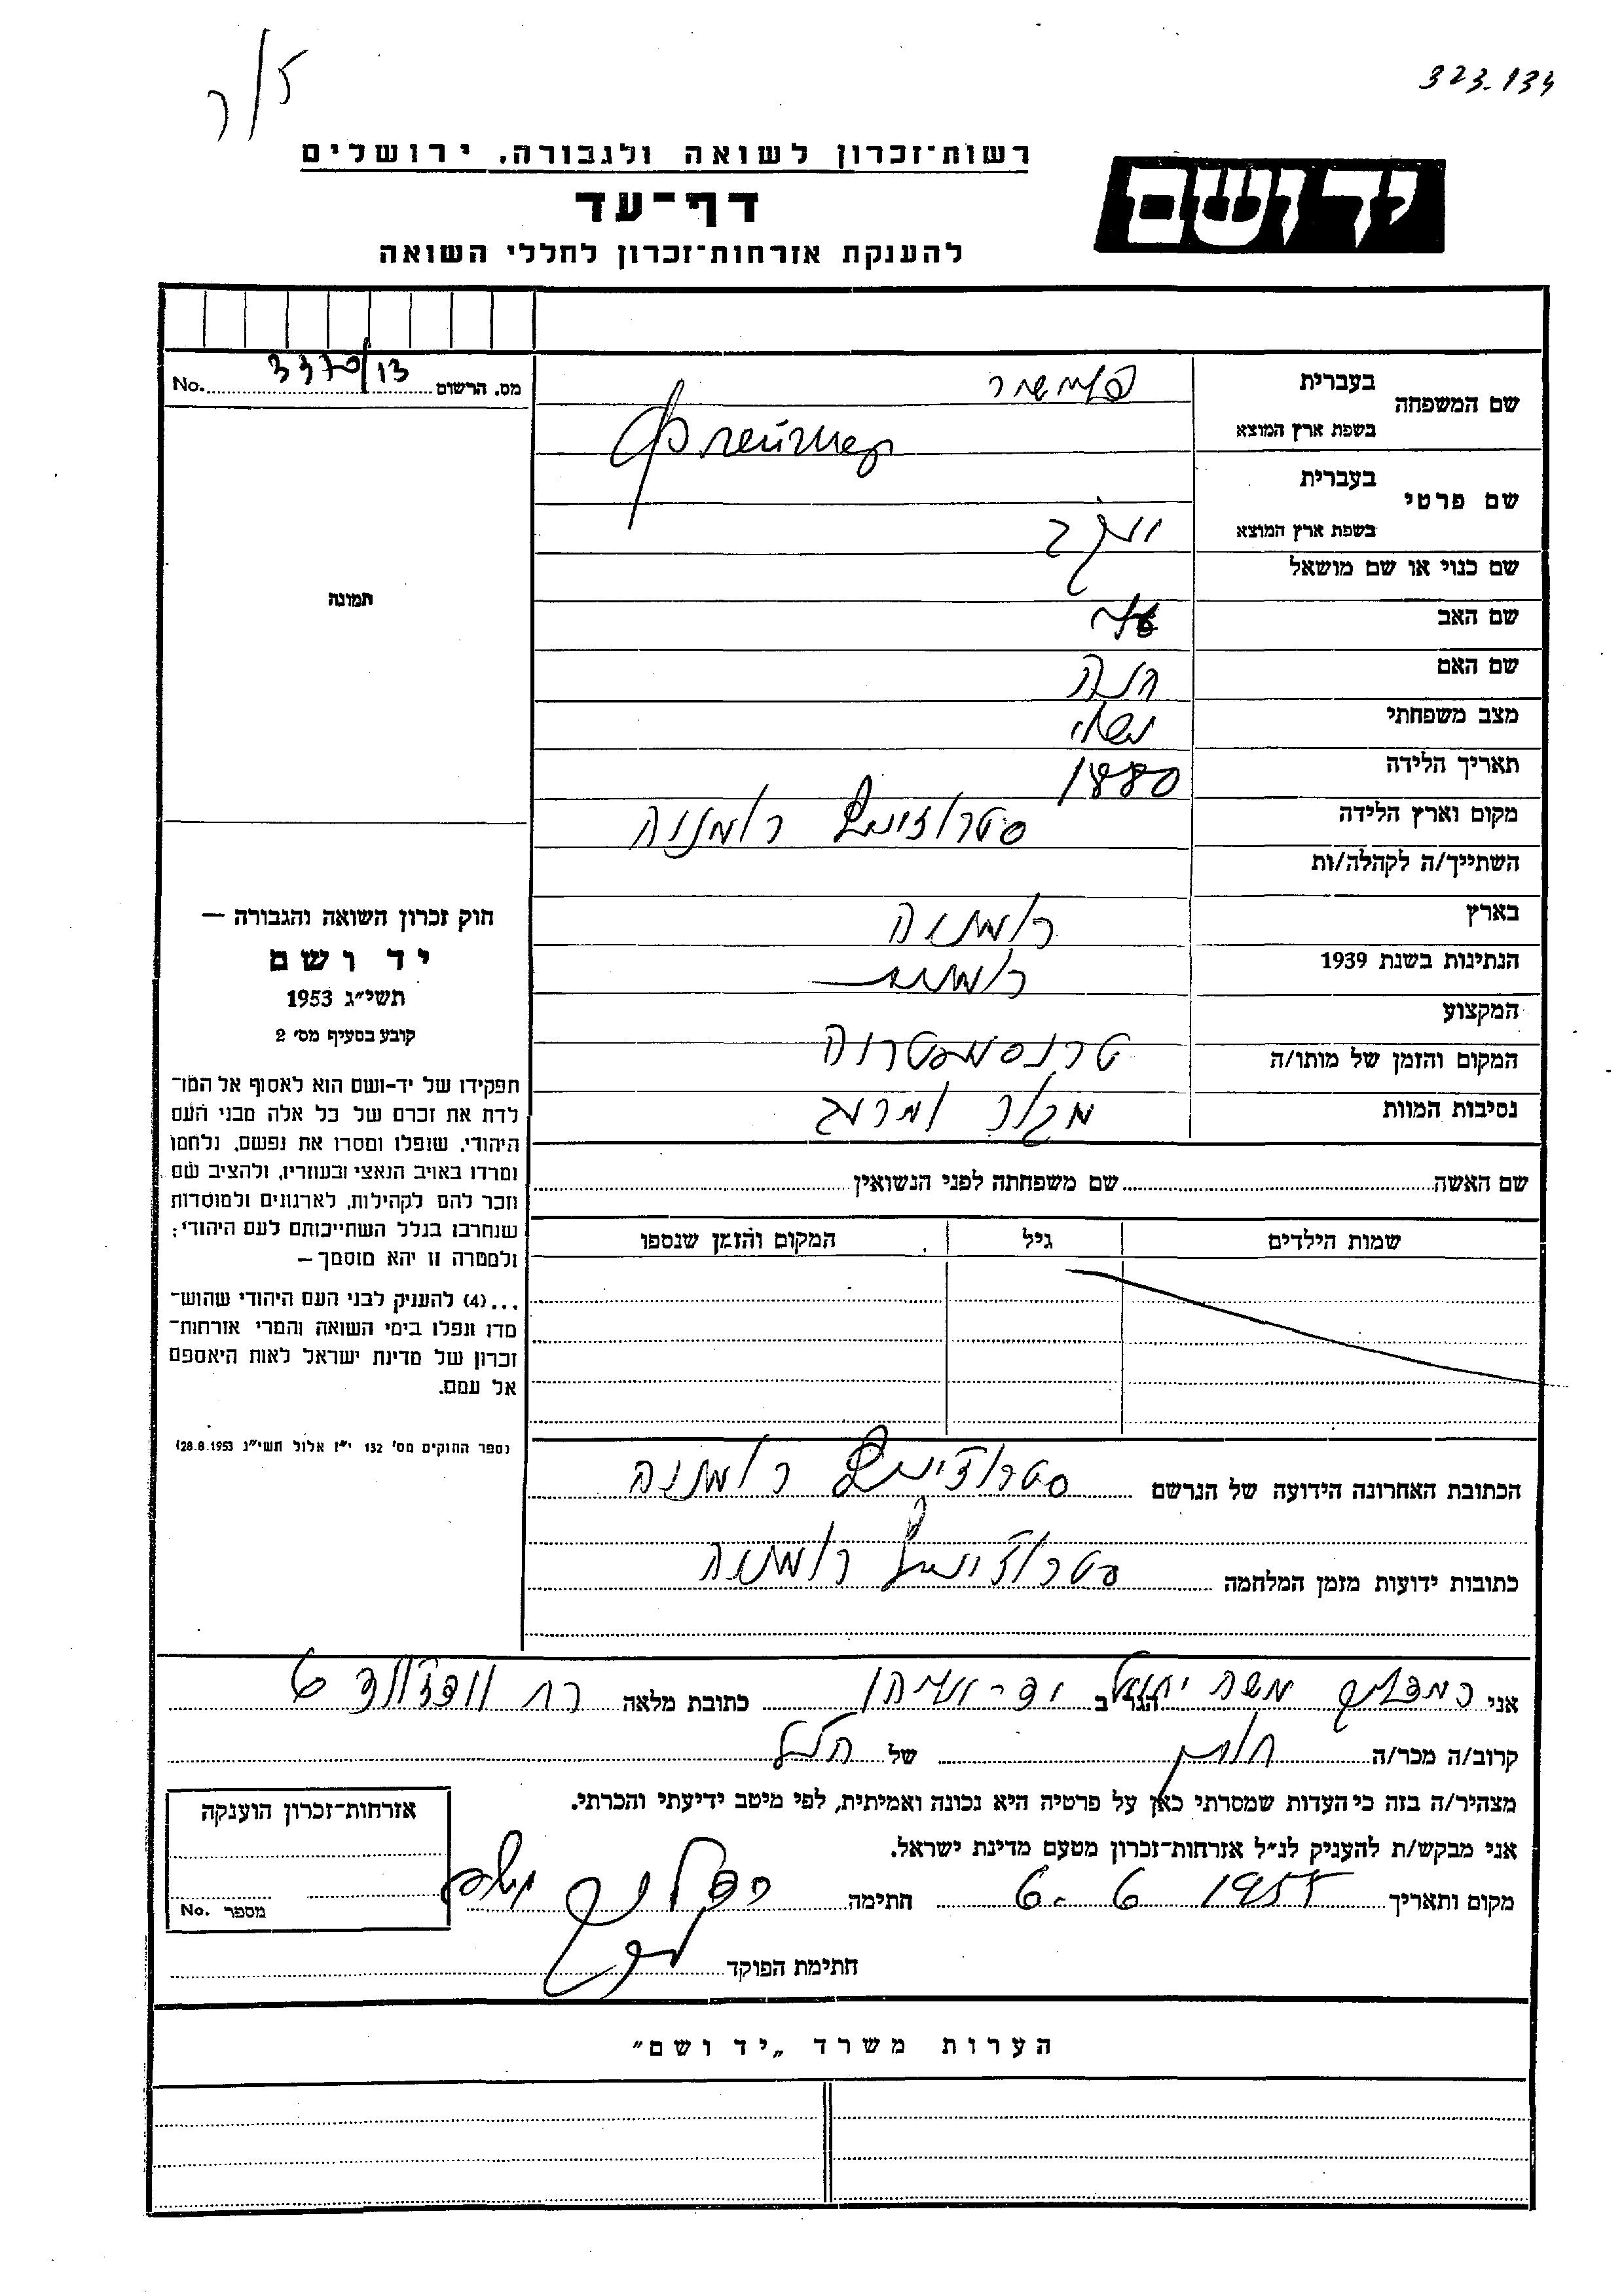 323.134
ר/ז
רשות־זכרון לשואה ולגבורה, ירושלים
יד ושם
דף־עד
להענקת אזרחות־זכרון לחללי השואה
מס. הרשום 3370/13 No.
שם המשפחה
בעברית
בשפת ארץ המוצא
שם פרטי
בעברית
בשפת ארץ המוצא יעקב
שם כנוי או שם מושאל
שם האב
שם האם חנה
מצב משפחתי נשוי
תאריך הלידה 1880
מקום וארץ הלידה רומניה
השתייך/ה לקהלה/ות
בארץ רומניה
הנתינות בשנת 1939 רומנית
המקצוע
המקום והזמן של מותו/ה טרנסניסטריה
נסיבות המוות
תמונה
חוק זכרון השואה והגבורה —
יד ושם
תשי״ג 1953
קובע בסעיף מס׳ 2
תפקידו של יד-ושם הוא לאסוף אל המו־
לדת את זכרם של כל אלה מבני העם
היהודי, שנפלו ומסרו את נפשם, נלחמו
ומרדו באויב הנאצי ובעוזריו, ולהציב שם
וזכר להם לקהילות, לארגונים ולמוסדות
שנחרבו בגלל השתייכותם לעם היהודי;
ולמטרה זו יהא מוסמך —
...(4) להעניק לבני העם היהודי שהוש־
מדו ונפלו בימי השואה והמרי אזרחות־
זכרון של מדינת ישראל לאות היאספם
אל עמם.
(ספר החוקים מס׳ 132 י״ז אלול תשי״ג 28.8.1953)
שם האשה שם משפחתה לפני הנשואין
שמות הילדים גיל המקום והזמן שנספו
הכתובת האחרונה הידועה של הנרשם רומניה
כתובות ידועות מזמן המלחמה רומניה
אני משה הגר ב כתובת מלאה
קרוב/ה מכר/ה חותן של הנ״ל
מצהיר/ה בזה כי העדות שמסרתי כאן על פרטיה היא נכונה ואמיתית, לפי מיטב ידיעתי והכרתי.
אני מבקש/ת להעניק לנ״ל אזרחות־זכרון מטעם מדינת ישראל.
מקום ותאריך 6.6 1955 חתימה
חתימת הפוקד
אזרחות־זכרון הוענקה
מספר No.
הערות משרד „יד ושם״